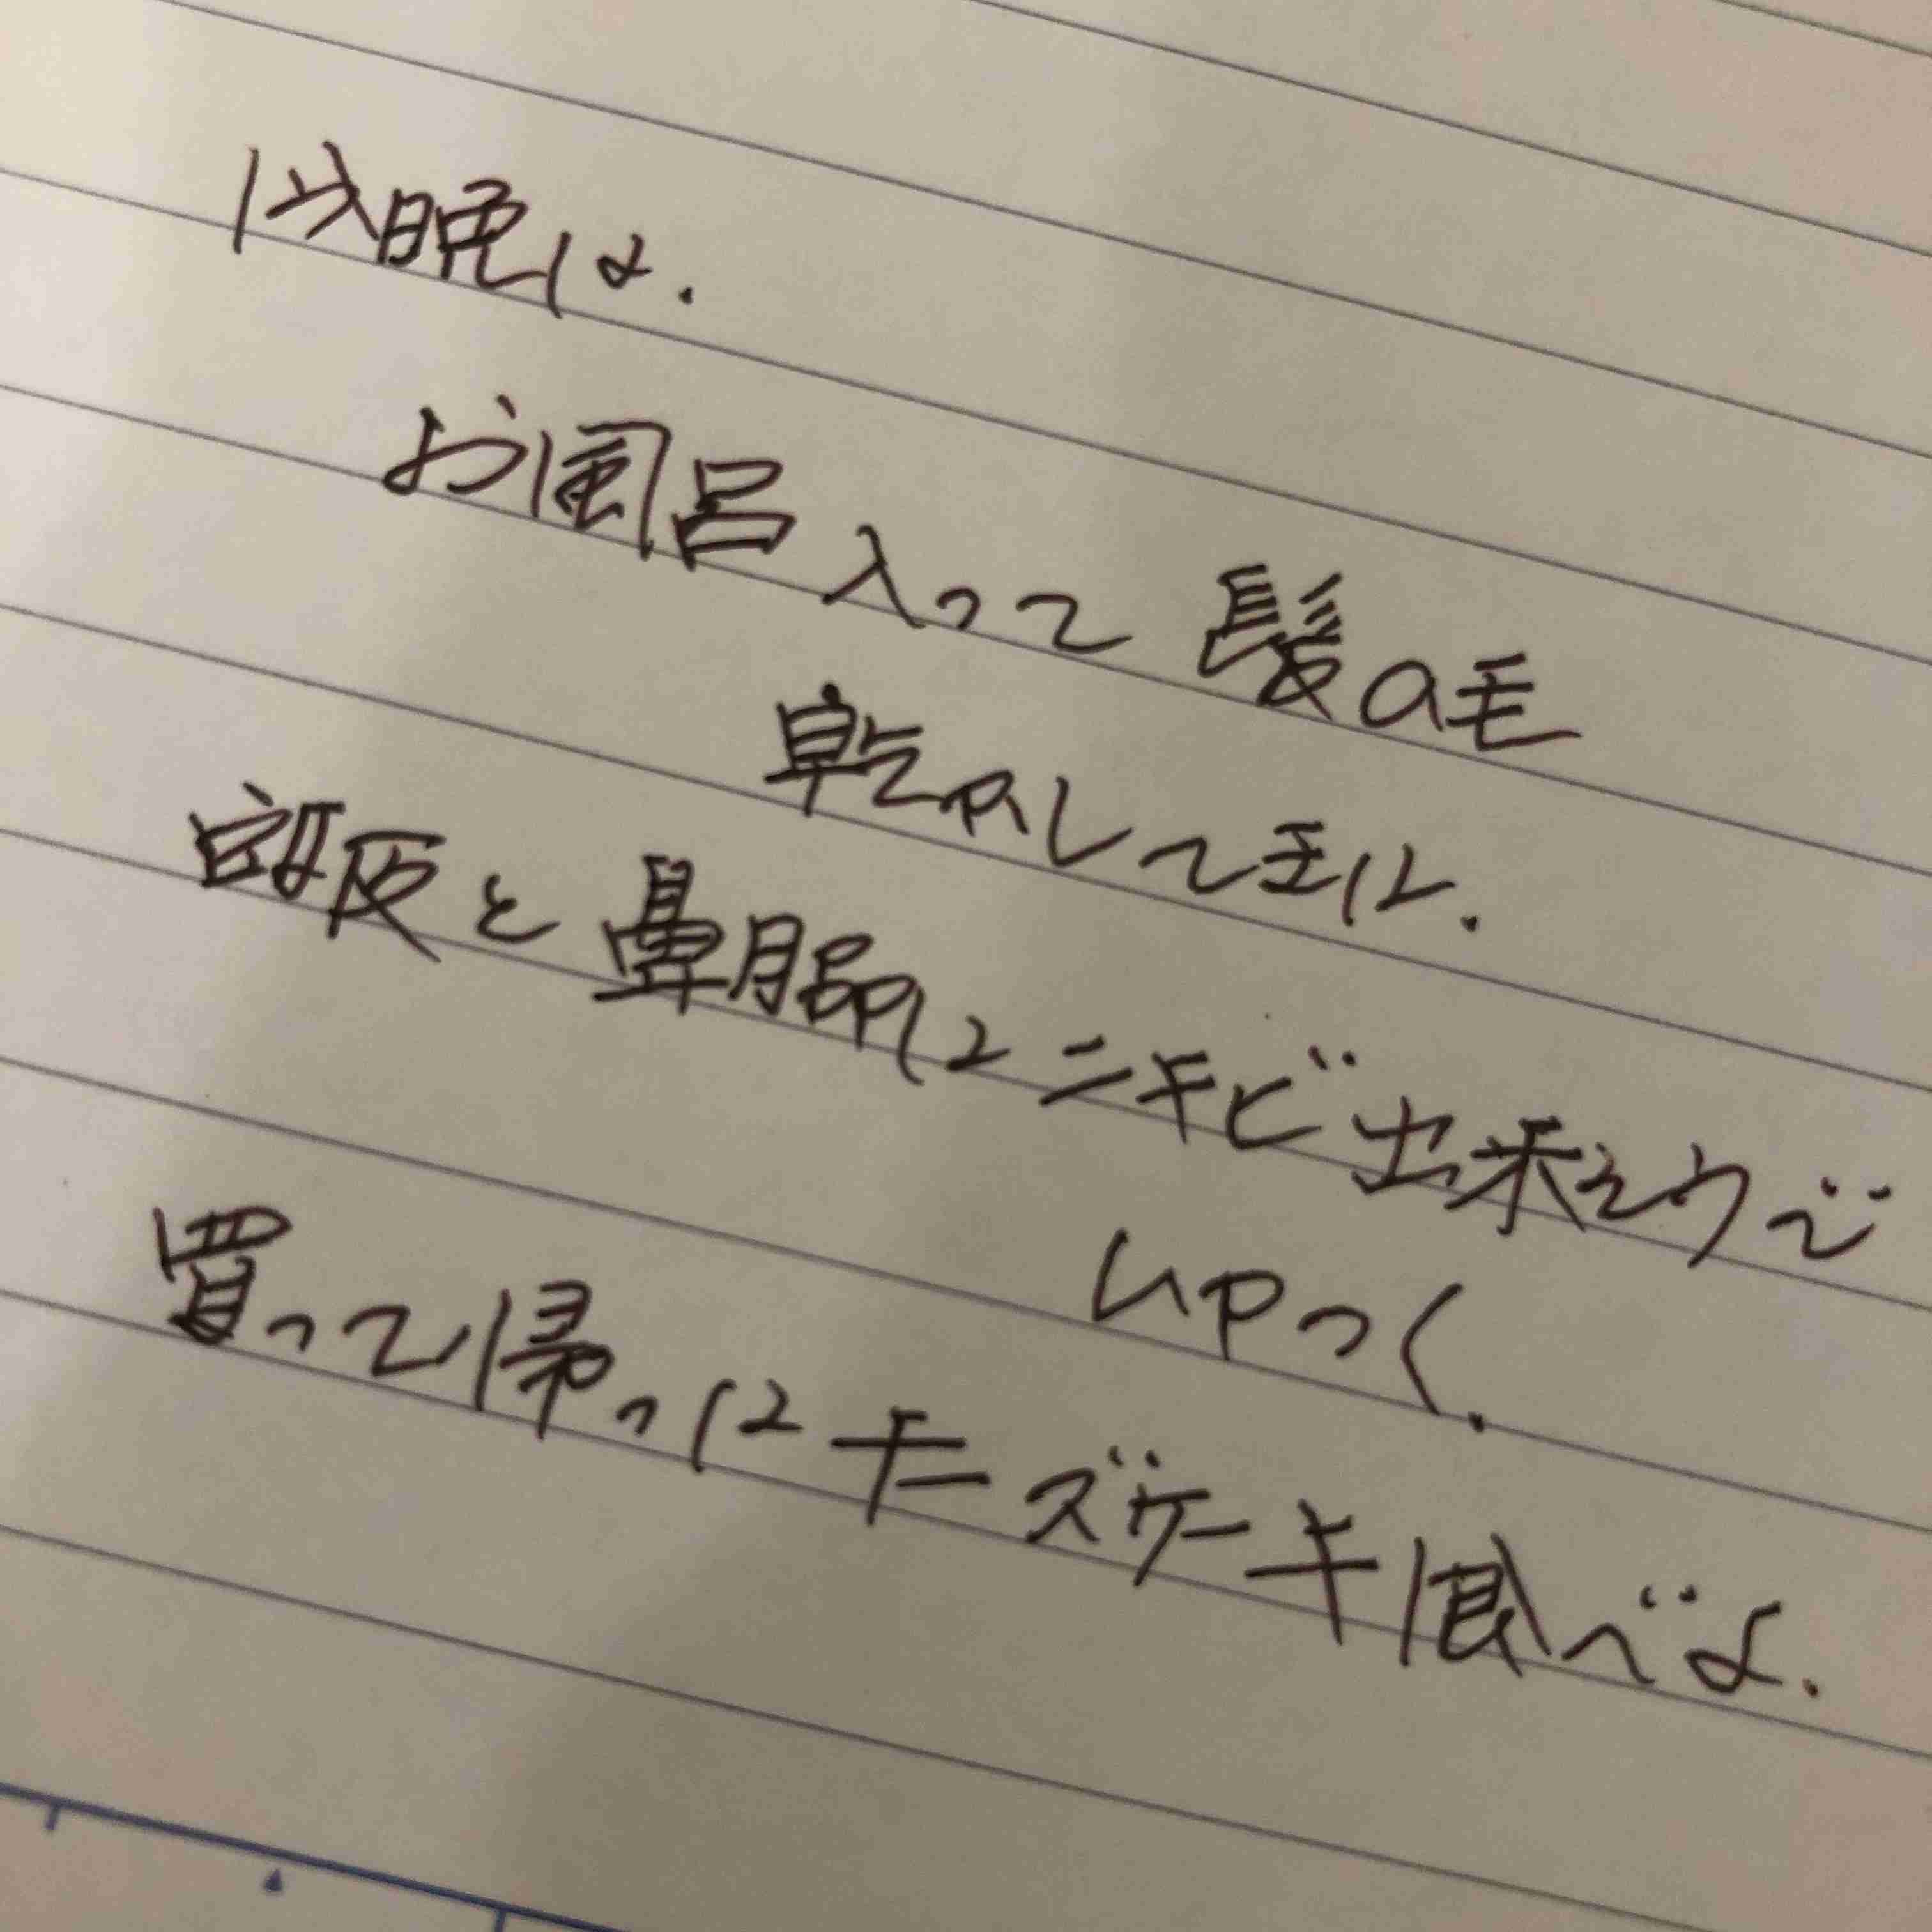 昨晩は.
お風呂入って髪の毛
乾かして寝た.
と鼻の脇にニキビ出来そうで
いやっく.
買って帰ったチーズケーキ食べよ.